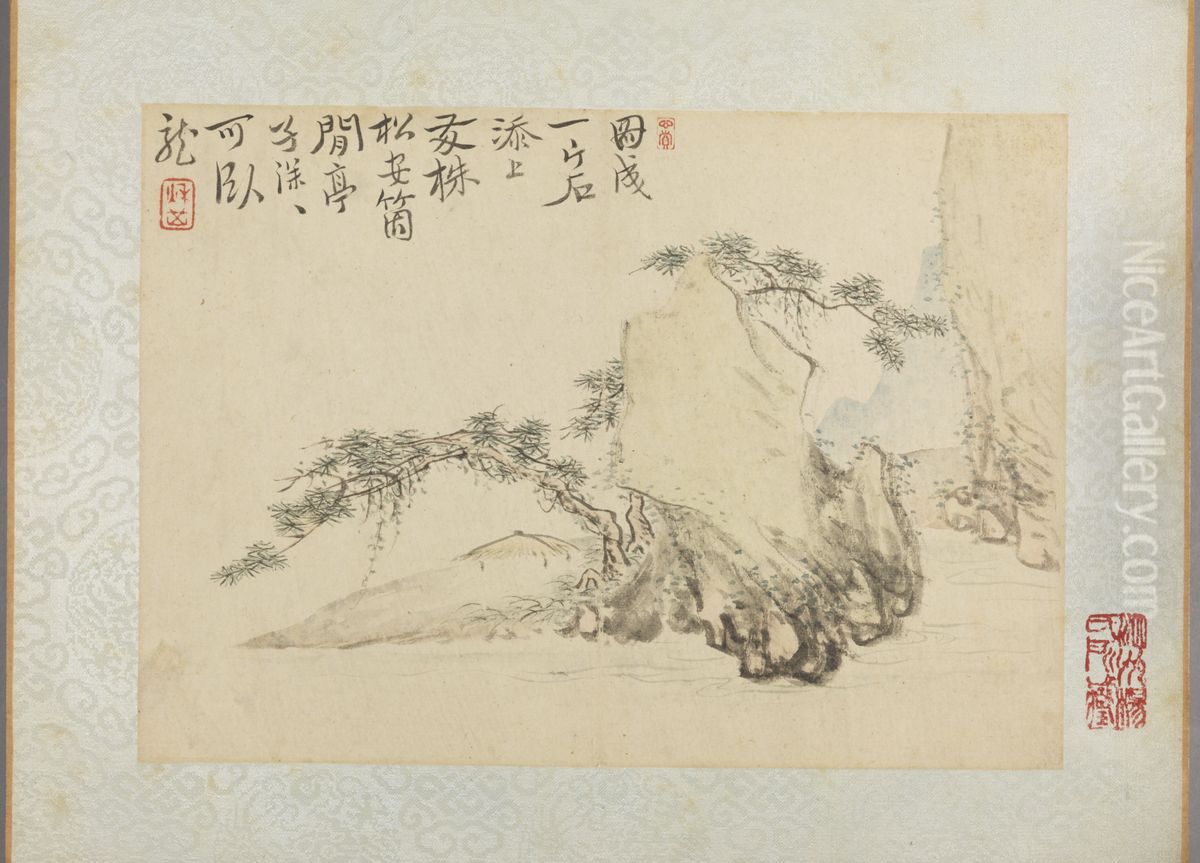 圖成
一片石
添上
數株
松安箇
閒亭
子深〻
可臥
龍
NiceArtGallery.com